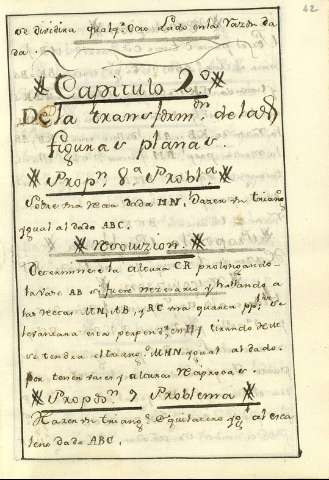 62
se dividira qualq.ª otro Lado en la razon da
da.
Capitulo 2º
De la transform.on de las
figuras planas.
Prop.n 8ª Probl.ª
Sobre una recta dada MN, hazer un triang.º
ygual al dado ABC.
Resoluzion
Determinese la altura CR prolongando
la vase AB si fuere nezesario y hallando a
las rectas MN, AB, y RC una quarta pp.
levantara esta perpend.r en M y tirando
se tendra el triang.º MHN ygual al dado.
por tener vases y alturas reciprocas
Propos.on 9 Problema
Hazer un triang.º equilatero yg.l al esca
leno dado ABC.